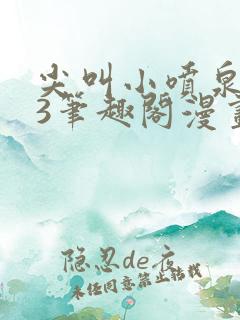 尖叫小喷泉
3笔趣阁漫画
隐忍de夜
未经同意禁止转载